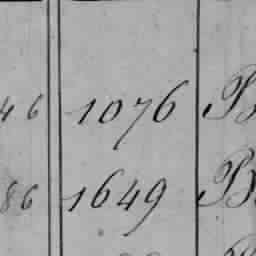 46 1076 B
86 1649 B